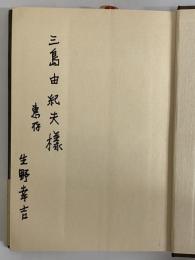 三島由紀夫様
恵存
生野幸吉